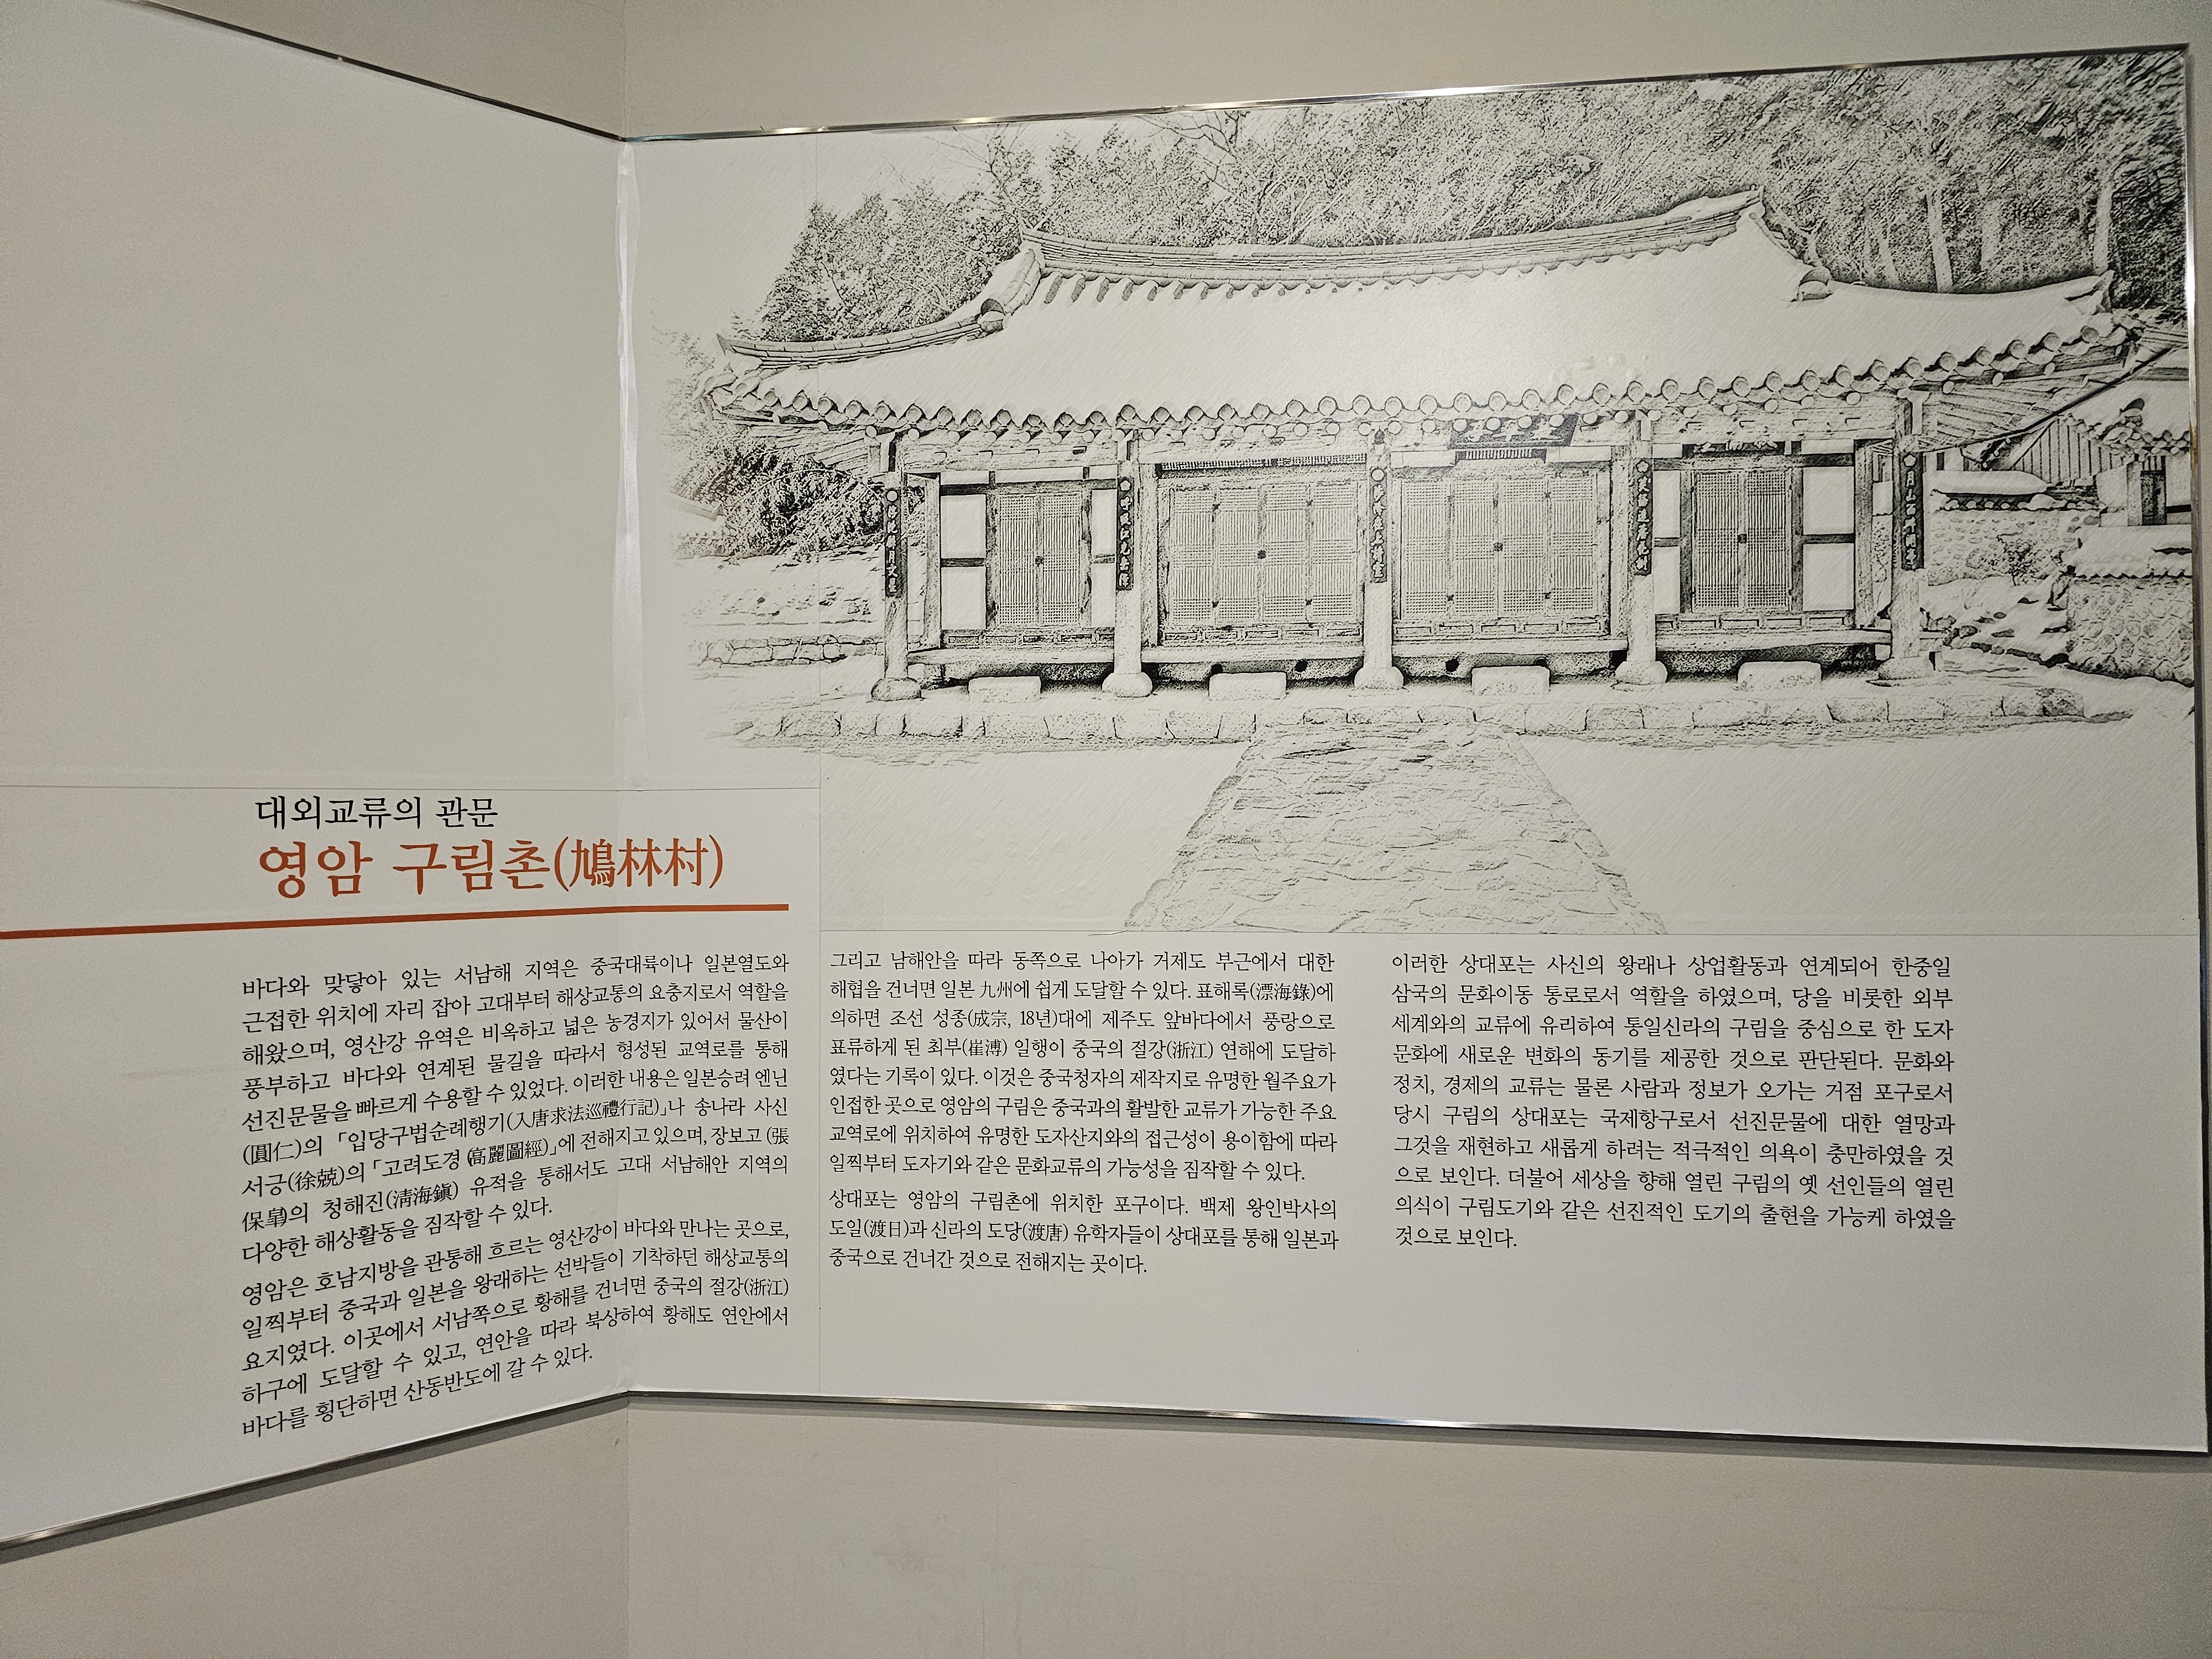 대외교류의 관문
영암 구림촌(鳩林村)
바다와 맞닿아 있는 서남해 지역은 중국대륙이나 일본열도와
근접한 위치에 자리 잡아 고대부터 해상교통의 요충지로서 역할을
해왔으며, 영산강 유역은 비옥하고 넓은 농경지가 있어서 물산이
풍부하고 바다와 연계된 물길을 따라서 형성된 교역로를 통해
선진문물을 빠르게 수용할 수 있었다. 이러한 내용은 일본승려 엔닌
(圓仁)의 「입당구법순례행기(入唐求法巡禮行記)」나 송나라 사신
서긍(徐兢)의 「고려도경(高麗圖經)」에 전해지고 있으며, 장보고 (張
保皐)의 청해진(淸海鎭) 유적을 통해서도 고대 서남해안 지역의
다양한 해상활동을 짐작할 수 있다.
영암은 호남지방을 관통해 흐르는 영산강이 바다와 만나는 곳으로,
일찍부터 중국과 일본을 왕래하는 선박들이 기착하던 해상교통의
요지였다. 이곳에서 서남쪽으로 황해를 건너면 중국의 절강(浙江)
하구에 도달할 수 있고, 연안을 따라 북상하여 황해도 연안에서
바다를 횡단하면 산동반도에 갈 수 있다.
그리고 남해안을 따라 동쪽으로 나아가 거제도 부근에서 대한
해협을 건너면 일본 九州에 쉽게 도달할 수 있다. 표해록(漂海錄)에
의하면 조선 성종(成宗, 18년)대에 제주도 앞바다에서 풍랑으로
표류하게 된 최부(崔溥) 일행이 중국의 절강(浙江) 연해에 도달하
였다는 기록이 있다. 이것은 중국청자의 제작지로 유명한 월주요가
인접한 곳으로 영암의 구림은 중국과의 활발한 교류가 가능한 주요
교역로에 위치하여 유명한 도자산지와의 접근성이 용이함에 따라
일찍부터 도자기와 같은 문화교류의 가능성을 짐작할 수 있다.
상대포는 영암의 구림촌에 위치한 포구이다. 백제 왕인박사의
도일(渡日)과 신라의 도당(渡唐) 유학자들이 상대포를 통해 일본과
중국으로 건너간 것으로 전해지는 곳이다.
이러한 상대포는 사신의 왕래나 상업활동과 연계되어 한중일
삼국의 문화이동 통로로서 역할을 하였으며, 당을 비롯한 외부
세계와의 교류에 유리하여 통일신라의 구림을 중심으로 한 도자
문화에 새로운 변화의 동기를 제공한 것으로 판단된다. 문화와
정치, 경제의 교류는 물론 사람과 정보가 오가는 거점 포구로서
당시 구림의 상대포는 국제항구로서 선진문물에 대한 열망과
그것을 재현하고 새롭게 하려는 적극적인 의욕이 충만하였을 것
으로 보인다. 더불어 세상을 향해 열린 구림의 옛 선인들의 열린
의식이 구림도기와 같은 선진적인 도기의 출현을 가능케 하였을
것으로 보인다.